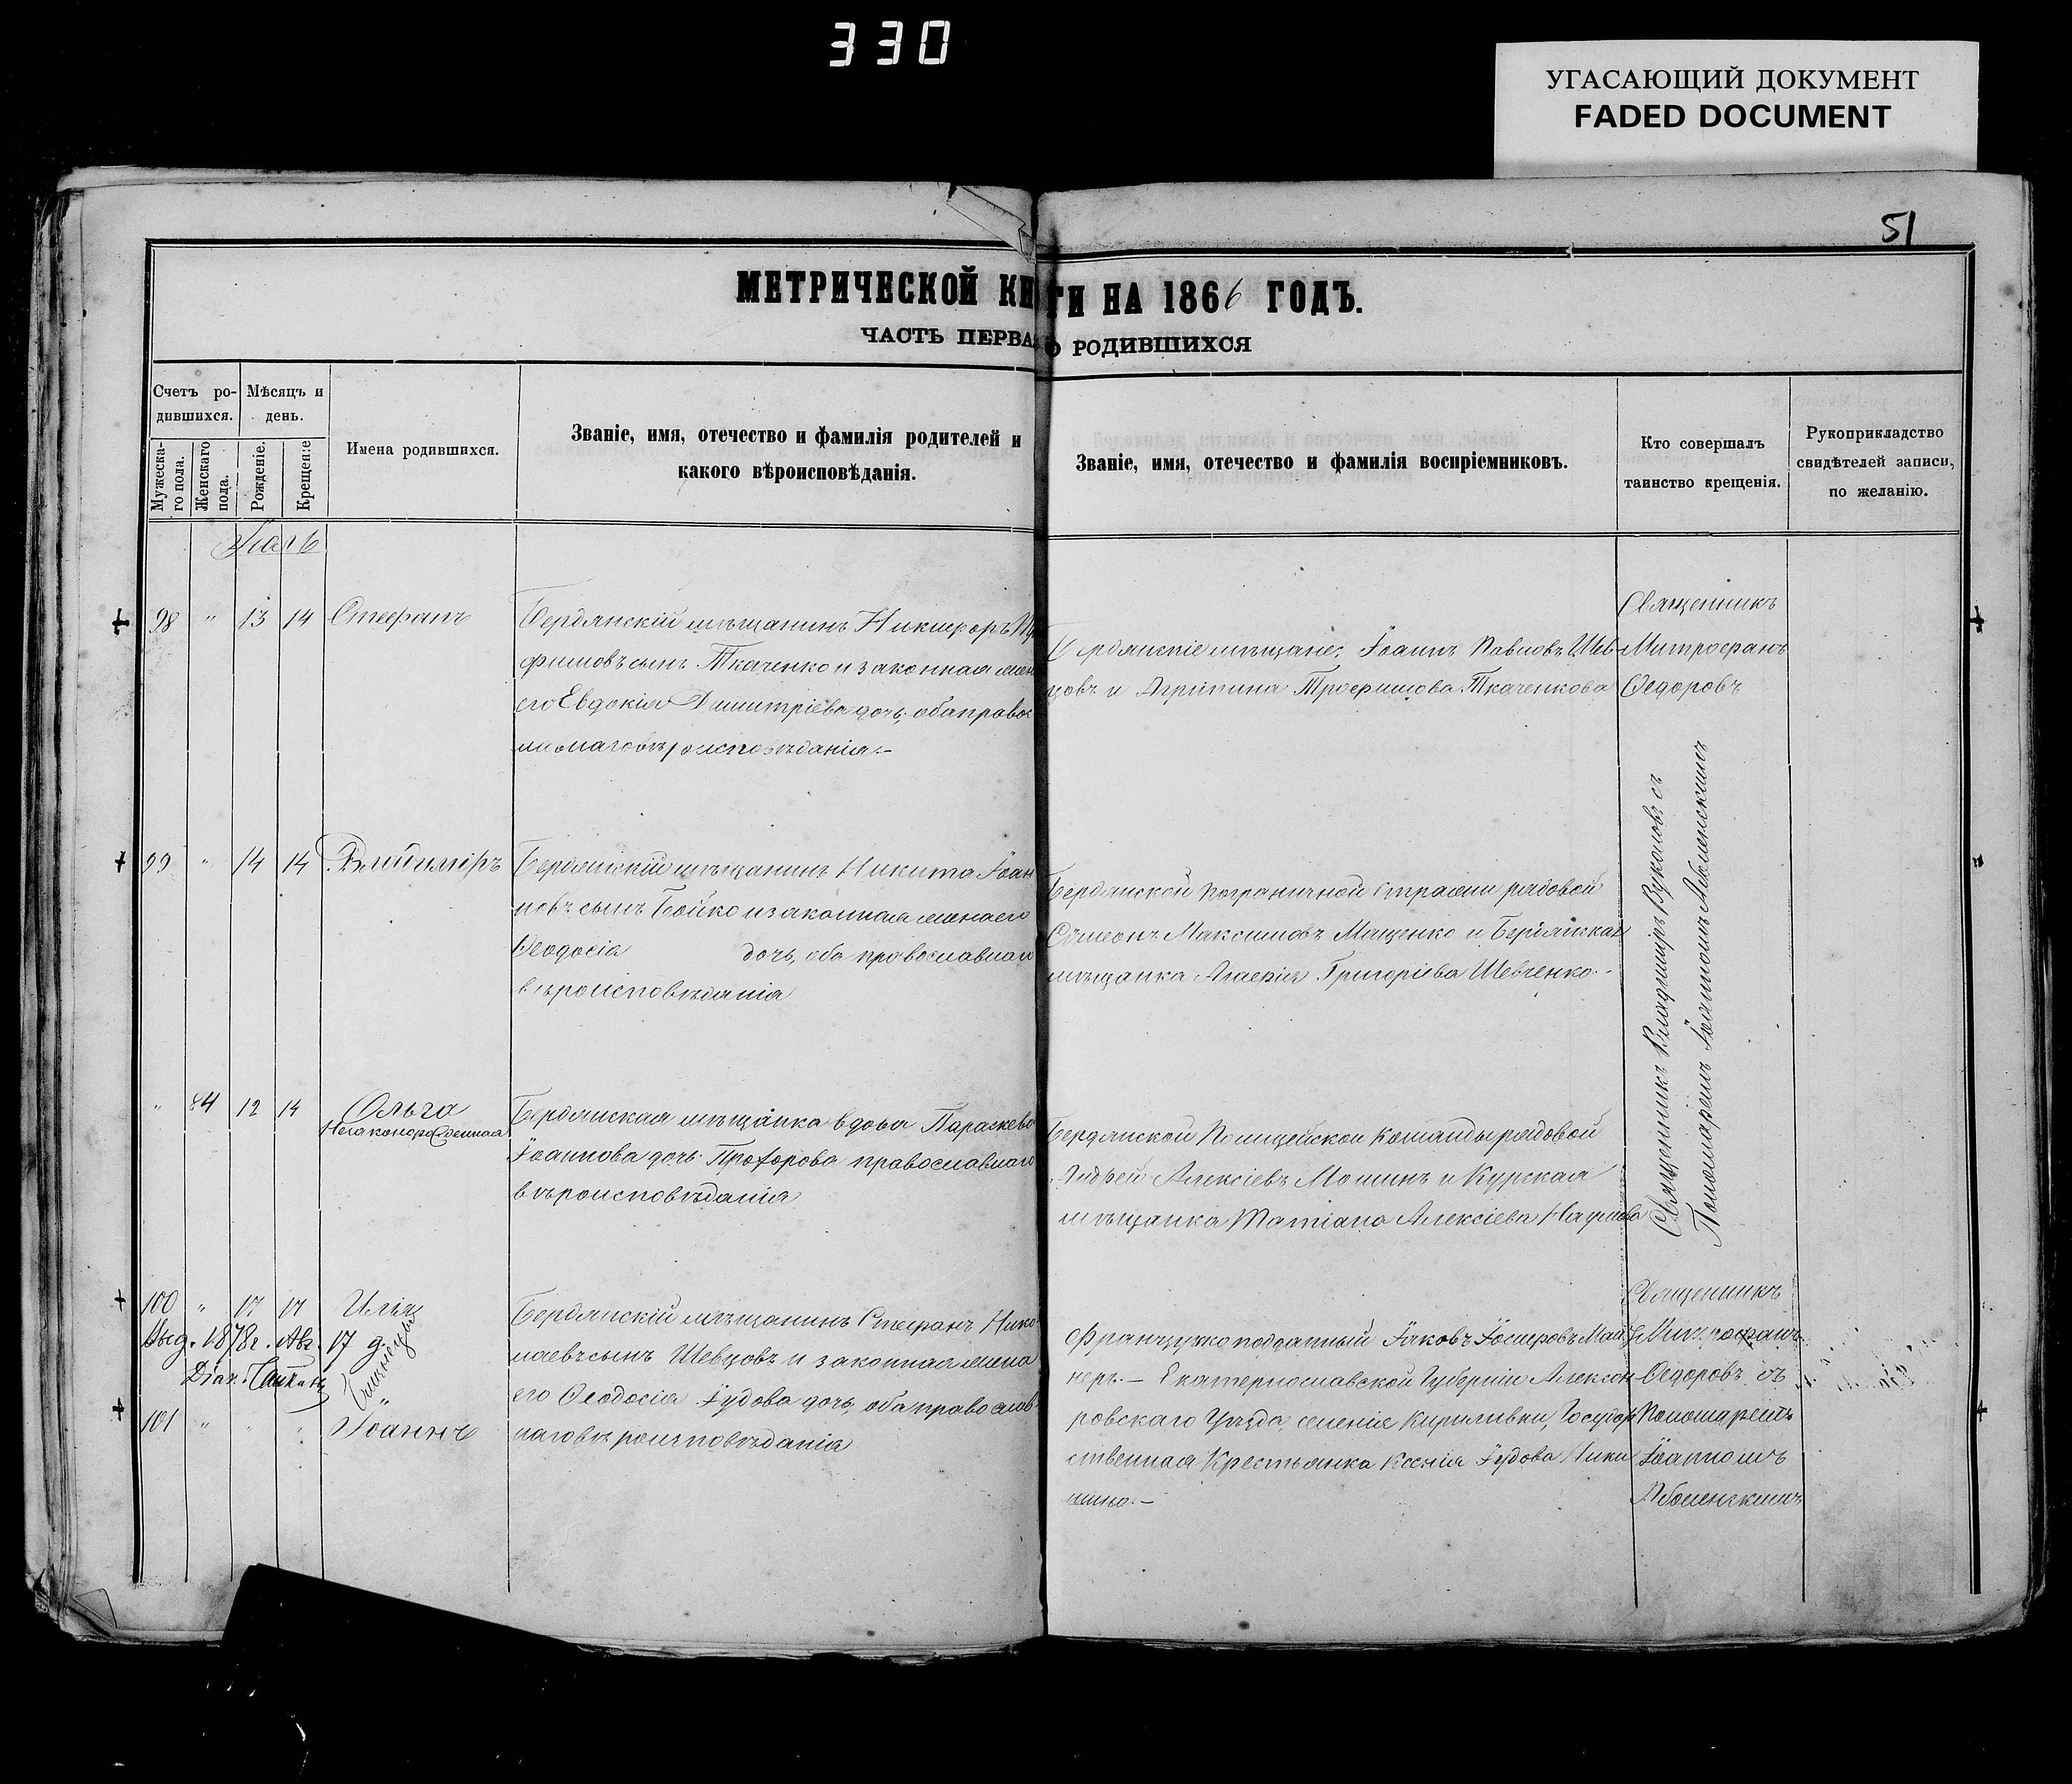 330
УГАСАЮЩИЙ ДОКУМЕНТ
FADED DOCUMENT
51
МЕТРИЧЕСКОЙ КНИГИ НА 1866 ГОДЪ.
ЧАСТЬ ПЕРВА О РОДИВШИХСЯ
Счетъ ро-
дившихся.
Мужеска-
го пола.
Женскаго
пола.
Мѣсяцъ и
день.
Рожденіе.
Крещеніе
Имена родившихся.
Званіе, имя, отечество и фамилія родителей и
какого вѣроисповѣданія.
Званіе, имя, отечество и фамилія воспріемниковъ.
Кто совершалъ
таинство крещенія.
Рукоприкладство
свидѣтелей записи,
по желанію.
98 " 13 14 Стефанъ
Бердянскій мѣщанинъ Никифоръ Тро
фимовъ сынъ Ткаченко и законная жен
его Евдокія Димитріева дочь, оба правос
лавнаго вѣроисповѣданія.-
Бердянскіе мѣщане, Іоаннъ Павловъ Шев
цовъ и Агрипина Трофимова Ткаченкова
Священникъ
Митрофанъ
Ѳедоровъ
99 " 14 14 Владиміръ
Бердянскій мѣщанинъ Никита Іоан
новъ сынъ Бойко и законная жена его
Ѳеодосія дочь, оба православнаго
вѣроисповѣданія
Бердянской пограничной стражи рядовой
Сѵмеонъ Максимовъ Мащенко и Бердянская
мѣщанка Агафія Григоріева Шевченко.-
Священникъ Владиміръ съ
Пономаремъ Іоанномъ
" 84 12 14 Ольга
Незаконорожденная
Бердянская мѣщанка вдова Параскева
Іоаннова дочь Прохорова православнаго
вѣроисповѣданія
Бердянской Полицейской Команды рядовой
Андрей Алексіевъ Мошинъ и Курская
мѣщанка Татіана Алексіева
100 " 17 17 Илія
Близнецы
Выд. 1878 г. Авг. 17 д.
Бердянскій мѣщанинъ Стефанъ Нико
лаевъ сынъ Шевцовъ и законная жена
его Ѳеодосія Іудова дочь, оба православ
наго вѣроисповѣданія
101 " " " Іоаннъ
Французкоподданный Іаковъ Іосифовъ Май
неръ.- Екатеринославской Губерніи Алексан
ровскаго Уѣзда, селеніе Кириливки, Государ
ственная Крестьянка Ксенія Іудова Ники
шино.-
Священникъ
Митрофанъ
Ѳедоровъ съ
Пономаремъ
Іоанномъ